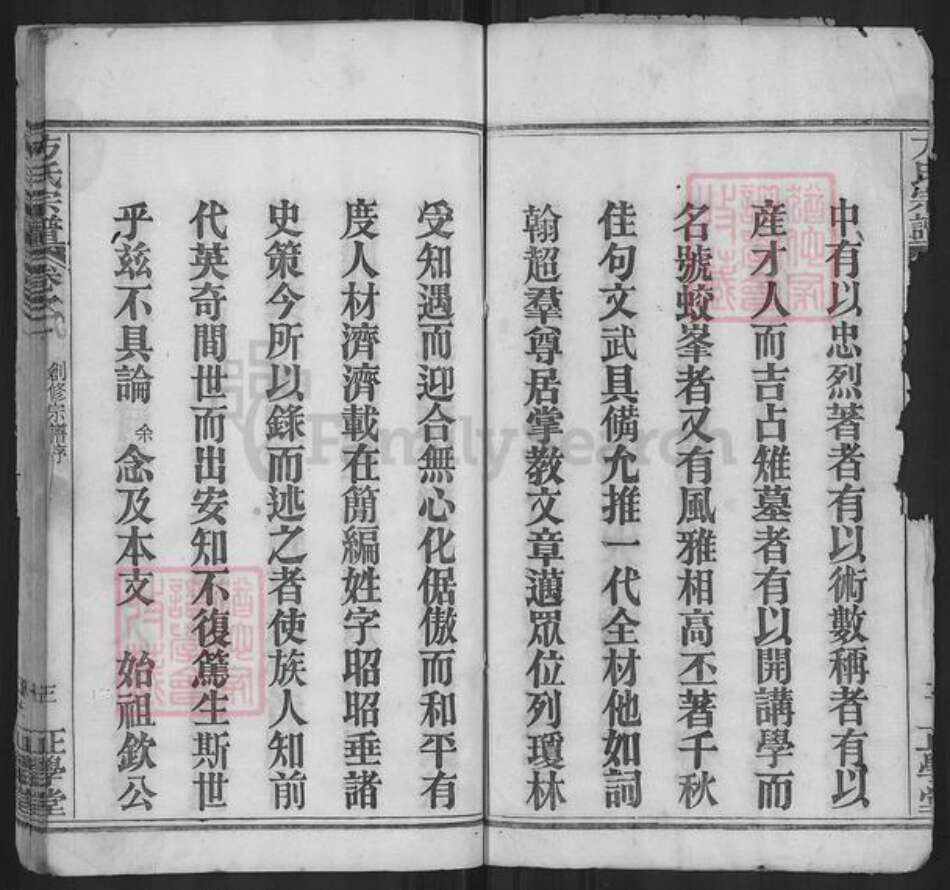 中有以忠烈著者有以術數稱者有以
產才人而吉占雉墓者有以開講學而
名號蛟峯者又有風雅相高丕著千秋
佳句文武具備允推一代全材他如詞
翰超羣尊居掌教文章邁眾位列瓊林
受知遇而迎合無心化倨傲而和平有
度人材濟濟載在簡編姓字昭昭垂諸
史策今所以錄而述之者使族人知前
代英奇間世而出安知不復篤生斯世
乎茲不具論 余 念及本支 始祖欽公
方氏宗譜
創修宗譜序
三
正學堂
FamilySearch